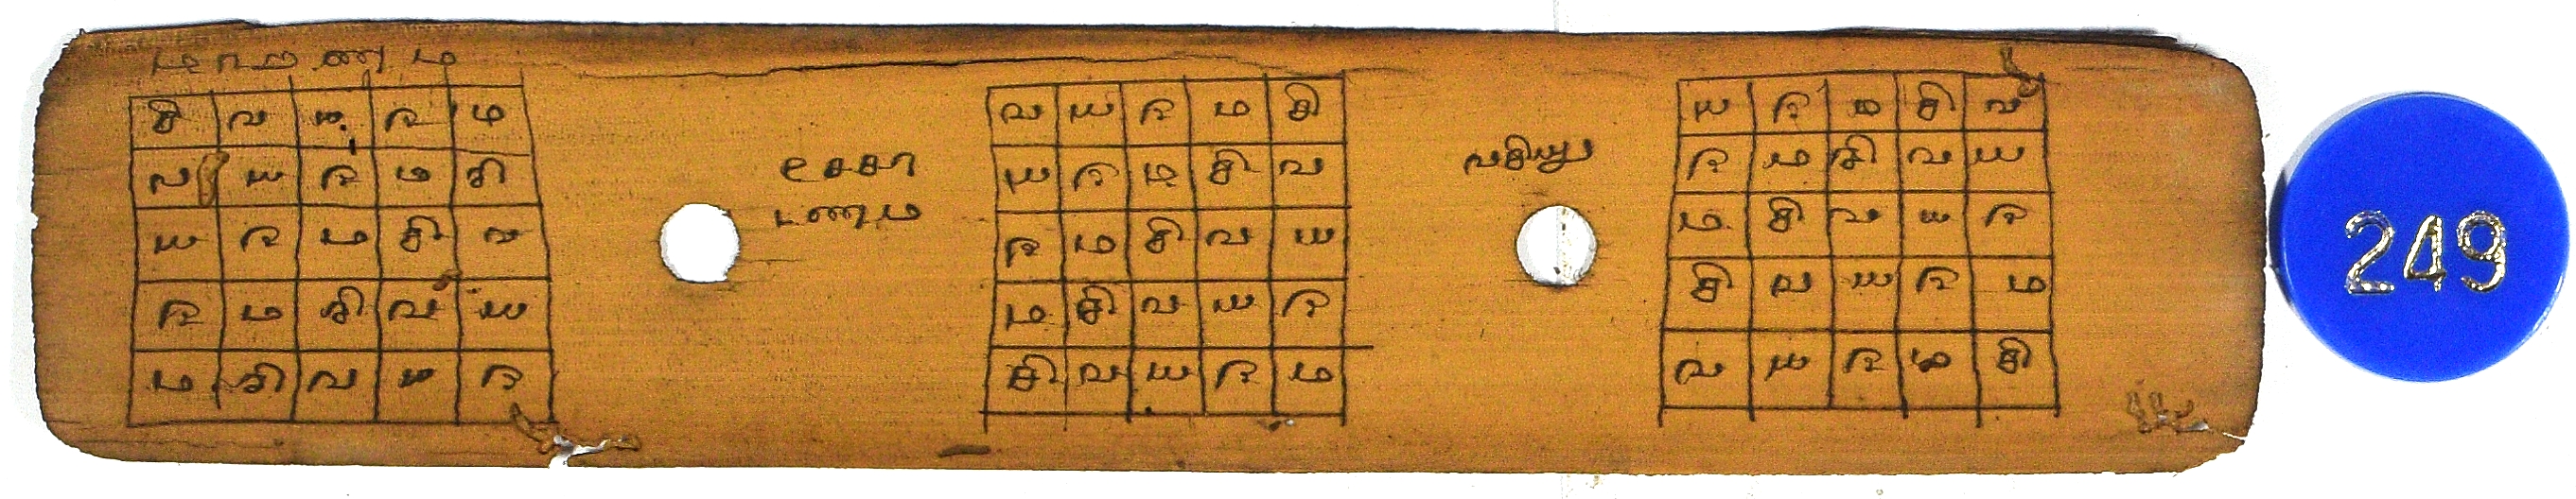 மாறணம்
சி வ ய ந ம
வ ய ந ம சி
ய ந ம சி வ
ந ம சி வ ய
ம சி வ ய ந
வ ய ந ம சி
ய ந ம சி வ
ந ம சி வ ய
ம சி வ ய ந
சி வ ய ந ம
ய ந ம சி வ
ந ம சி வ ய
ம சி வ ய ந
சி வ ய ந ம
வ ய ந ம சி
249